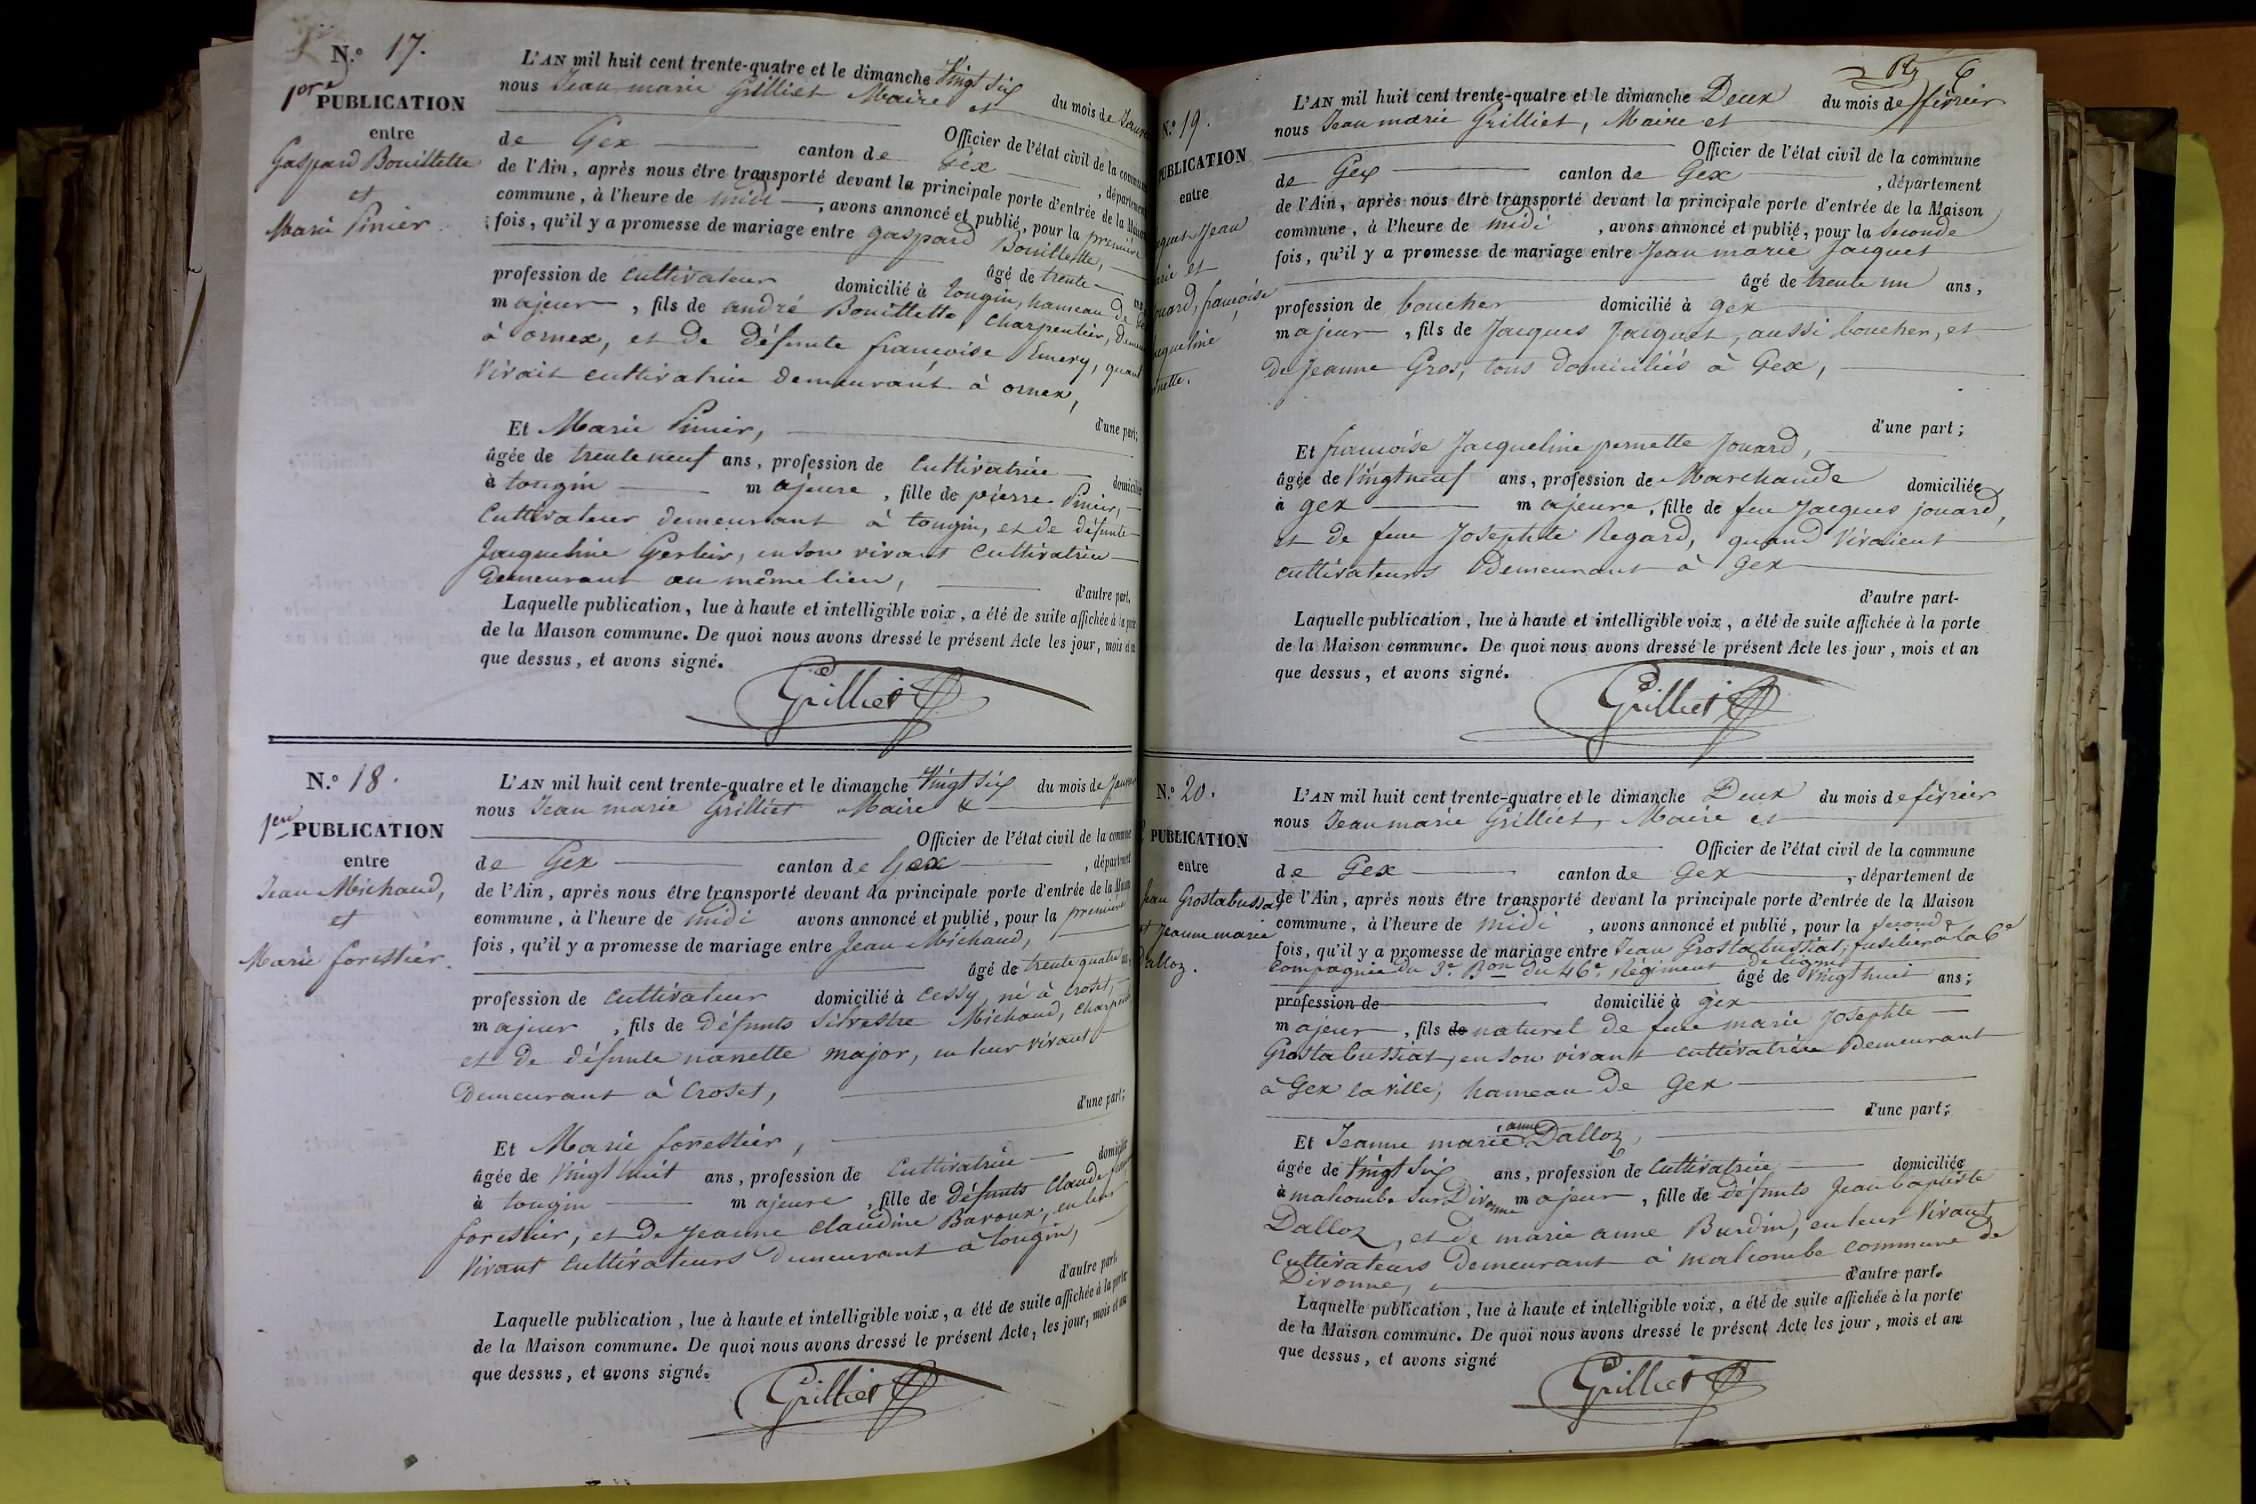 N.º 17.
1ere PUBLICATION
entre
Gaspard Bouillette
et
Marie Pinier.
L'AN mil huit cent trente-quatre et le dimanche Vingt six du mois de
nous Jean marie Grilliet Maire et
Officier de l'état civil de la
de Gex canton de Gex , département
de l'Ain, après nous être transporté devant la principale porte d'entrée de la Maison
commune, à l'heure de midi , avons annoncé et publié, pour la première
fois, qu'il y a promesse de mariage entre gaspard Bouillette,
âgé de trente
profession de cultivateur domicilié à tougin, hameau de
majeur , fils de andré Bouillette, charpentier,
à ornex, et de Défunte françoise Emery, quand
Vivait cultivatrice Demeurant à ornex,
d'une part;
Et Marie Pinier,
âgée de trente neuf ans, profession de Cultivatrice
à tougin majeure , fille de pierre Pinier,
Cultivateur demeurant à tougin, et de défunte
Jacqueline Gerlier, en son vivant Cultivatrice
Demeurant au même lieu,
d'autre part.
Laquelle publication, lue à haute et intelligible voix, a été de suite affichée à la
de la Maison commune. De quoi nous avons dressé le présent Acte les jour, mois et an
que dessus, et avons signé.
Grilliet
N.º 18.
1ere PUBLICATION
entre
Jean Michaud,
et
Marie forestier.
L'AN mil huit cent trente-quatre et le dimanche Vingt six du mois de
nous Jean marie Grilliet Maire &
Officier de l'état civil de la commune
de Gex canton de Gex , département
de l'Ain, après nous être transporté devant la principale porte d'entrée de la Maison
commune, à l'heure de midi avons annoncé et publié, pour la première
fois, qu'il y a promesse de mariage entre Jean Michaud,
âgé de trente quatre
profession de cultivateur domicilié à Cessy, né à Croset,
majeur , fils de défunts Silvestre Michaud,
et de défunte nanette major, en leur vivant
Demeurant à Croset,
d'une part;
Et Marie forestier,
âgée de Vingt huit ans, profession de Cultivatrice
à tougin majeure , fille de défunts Claude
forestier, et de Jeanne claudine Baroux, en leur
Vivant Cultivateurs Demeurant à tougin,
d'autre part.
Laquelle publication, lue à haute et intelligible voix, a été de suite affichée à la porte
de la Maison commune. De quoi nous avons dressé le présent Acte, les jour, mois et an
que dessus, et avons signé.
Grilliet
6
N.º 19.
PUBLICATION
entre
Jean
et
françoise
L'AN mil huit cent trente-quatre et le dimanche Deux du mois de février
nous Jean marie Grilliet, Maire et
Officier de l'état civil de la commune
de Gex canton de Gex , département
de l'Ain, après nous être transporté devant la principale porte d'entrée de la Maison
commune, à l'heure de midi , avons annoncé et publié, pour la Seconde
fois, qu'il y a promesse de mariage entre Jean marie Jacquet
âgé de trente un ans,
profession de boucher domicilié à gex
majeur , fils de Jacques Jacquet, aussi boucher, et
De Jeanne Gros, tous domiciliés à Gex,
d'une part;
Et françoise Jacqueline pernette Jouard,
âgée de Vingt neuf ans, profession de Marchande domiciliée
à gex majeure, fille de feu Jacques jouard,
et de feue Josephte Regard, quand Vivaient
cultivateurs Demeurant à Gex
d'autre part.
Laquelle publication, lue à haute et intelligible voix, a été de suite affichée à la porte
de la Maison commune. De quoi nous avons dressé le présent Acte les jour, mois et an
que dessus, et avons signé.
Grilliet
N.º 20.
PUBLICATION
entre
Jean Grostabussiat
et Jeanne marie
Dalloz.
L'AN mil huit cent trente-quatre et le dimanche Deux du mois de février
nous Jean marie Grilliet, Maire et
Officier de l'état civil de la commune
de Gex canton de Gex , département de
de l'Ain, après nous être transporté devant la principale porte d'entrée de la Maison
commune, à l'heure de midi , avons annoncé et publié, pour la seconde
fois, qu'il y a promesse de mariage entre Jean Grostabussiat, fusilier à la 6e
Compagnie du 3e Bon du 46e Régiment de ligne âgé de Vingt huit ans;
profession de domicilié à gex
majeur , fils de naturel de feue marie Josephte
Grostabussiat, en son vivant cultivatrice Demeurant
à Gex la ville, hameau de Gex
d'une part;
Et Jeanne marie anne Dalloz,
âgée de Vingt six ans, profession de Cultivatrice domiciliée
à malcombe sur Divonne majeur , fille de défunts Jean baptiste
Dalloz, et de marie anne Burdin, en leur Vivant
Cultivateurs Demeurant à malcombe commune de
Divonne, d'autre part.
Laquelle publication, lue à haute et intelligible voix, a été de suite affichée à la porte
de la Maison commune. De quoi nous avons dressé le présent Acte les jour, mois et an
que dessus, et avons signé
Grilliet